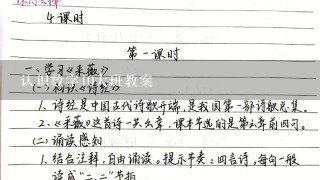 4课时
第一课时
一、学习《采薇》
(一)初识《诗经》
认识数字10大班教案
1、诗经是中国古代诗歌开端,是我国第一部诗歌总集。
2、《采薇》这首诗一共六章,课本节选的是第六章前四句。
(二)诵读感知
1、结合注释,自由诵读。提示节奏:四言诗,每句一般
读成"二、二"节拍